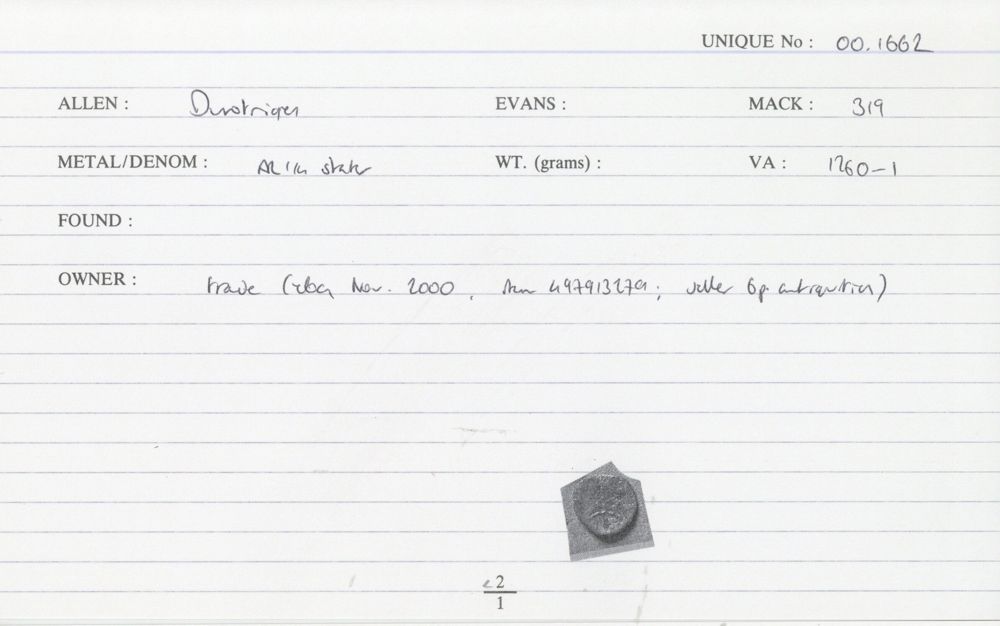 UNIQUE No : 00.1662
ALLEN : Durotriges EVANS : MACK : 319
METAL/DENOM : AR 1/4 stater WT. (grams) : VA : 1260-1
FOUND :
OWNER : trade (eBay Nov. 2000, item 497913279; seller bp antiquities)
2
1